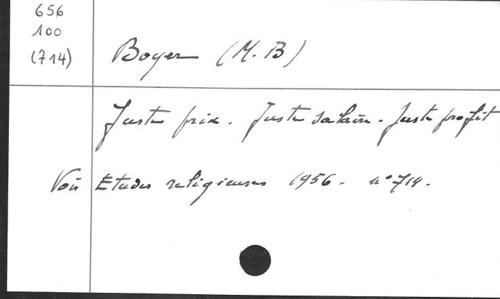 656
100
(714)
Boyer (M.B)
Juste prix. Juste salaire. Juste profit
Voir Etudes religieuses 1956. n° 714.